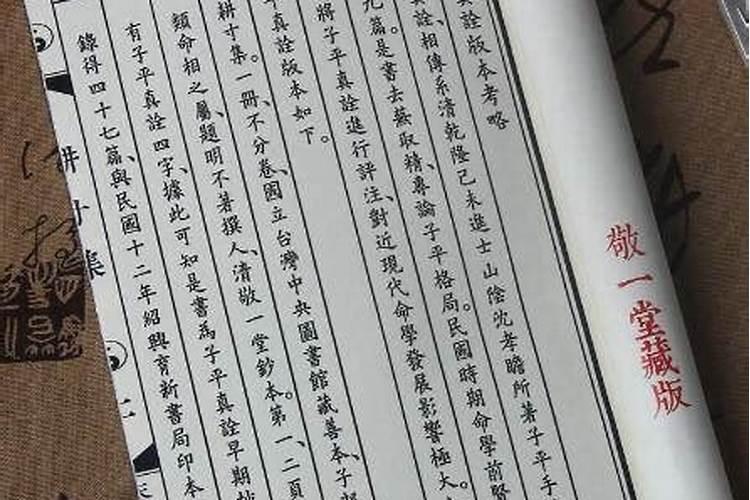 敬一堂藏版
真詮版本考略
真詮、相傳系清乾隆己未進士山陰沈孝瞻所著子平手
九篇。是書去蕪取精、專論子平格局。民國時期命學前賢
將子平真詮進行評注、對近現代命學發展影響極大。
平真詮版本如下。
耕寸集。一冊、不分卷、國立台灣中央圖書館藏善本、子
類命相之屬、題明不著撰人、清敬一堂鈔本。第一、二頁
有子平真詮四字、據此可知是書為子平真詮早期抄
錄得四十七篇、與民國十二年紹興育新書局印本
耕寸集